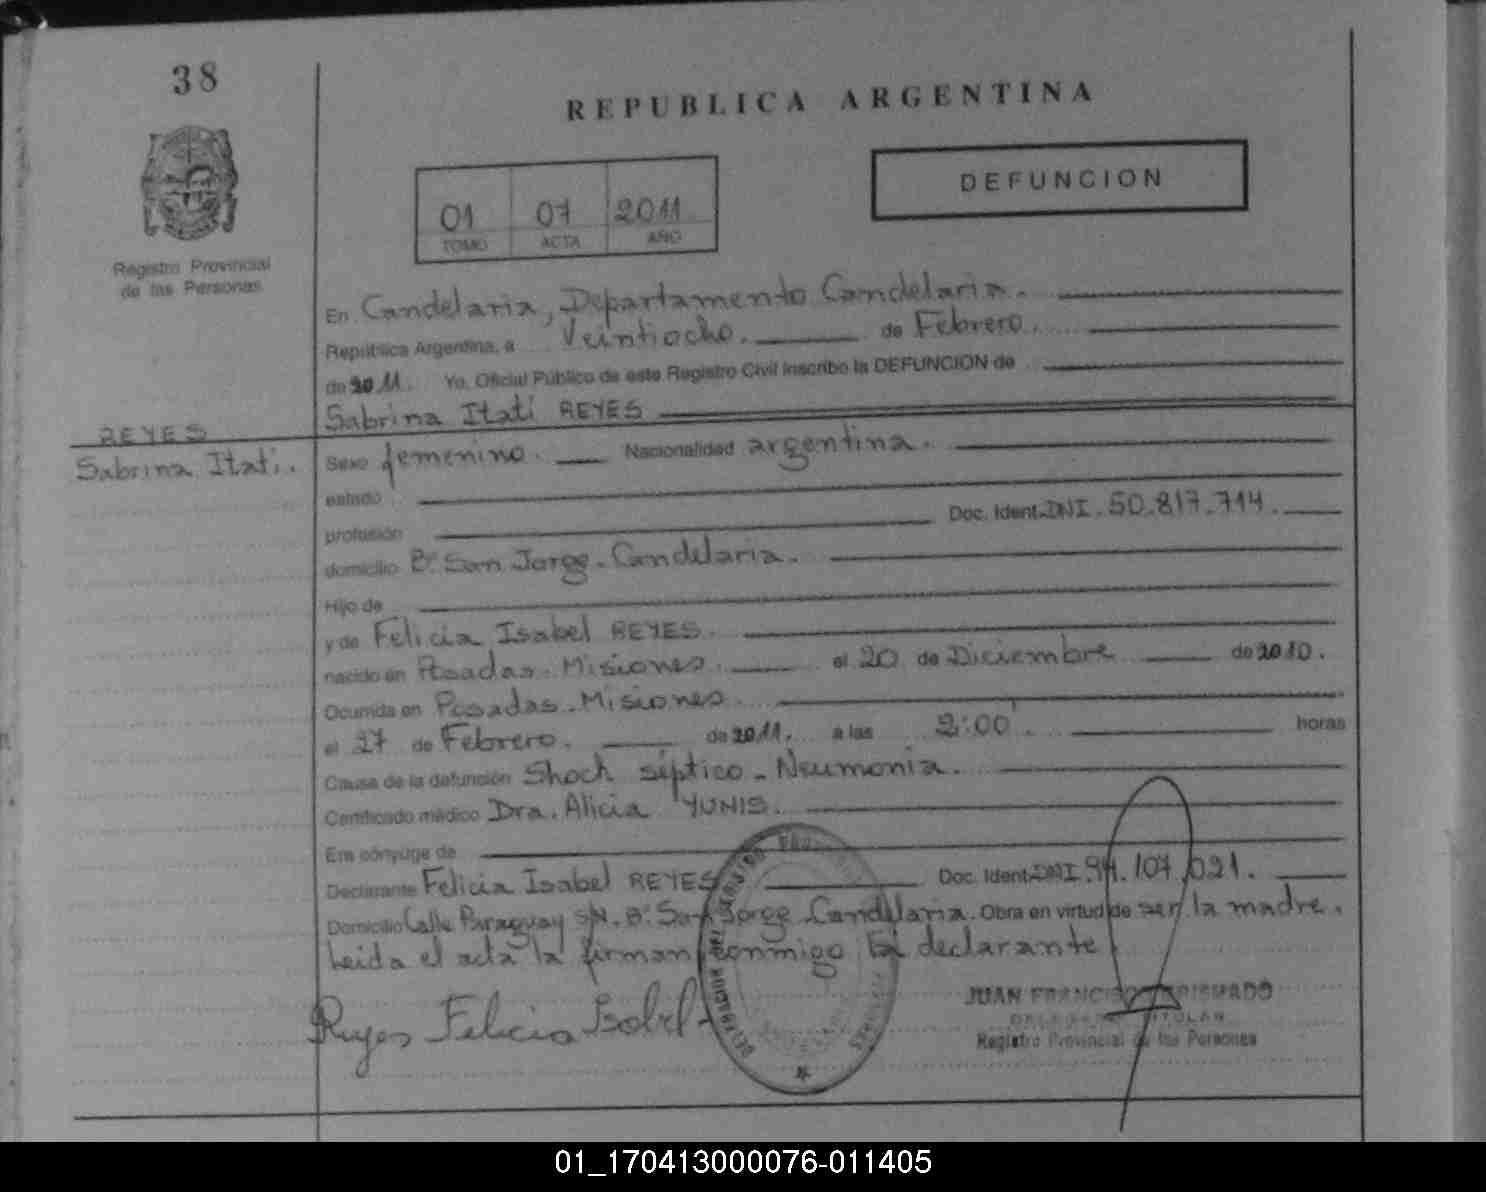 38
REPUBLICA ARGENTINA
DEFUNCION
01 07 2011
TOMO ACTA AÑO
Registro Provincial
de las Personas
En Candelaria, Departamento Candelaria.
República Argentina, a Veintiocho. de Febrero.
de 2011. Yo, Oficial Público de este Registro Civil inscribo la DEFUNCION de
Sabrina Itatí REYES
REYES
Sabrina Itatí.
Sexo femenino. Nacionalidad argentina.
estado
profesión Doc. Ident. DNI. 50.817.714.
domicilio Bº San Jorge. Candelaria.
Hijo de
y de Felicia Isabel REYES.
nacido en Posadas. Misiones. el 20 de Diciembre de 2010.
Ocurrida en Posadas. Misiones.
el 27 de Febrero. de 2011. a las 2:00. horas
Causa de la defunción Shock séptico - Neumonia.
Certificado médico Dra. Alicia YUNIS.
Era cónyuge de
Declarante Felicia Isabel REYES Doc. Ident. DNI. 94.107.021.
Domicilio Calle Paraguay S/N. Bº San Jorge. Candelaria. Obra en virtud de ser la madre.
Leida el acta la firman conmigo El declarante
Reyes Felicia Isabel
JUAN FRANCISCO
TITULAR
Registro Provincial de las Personas
01_170413000076-011405